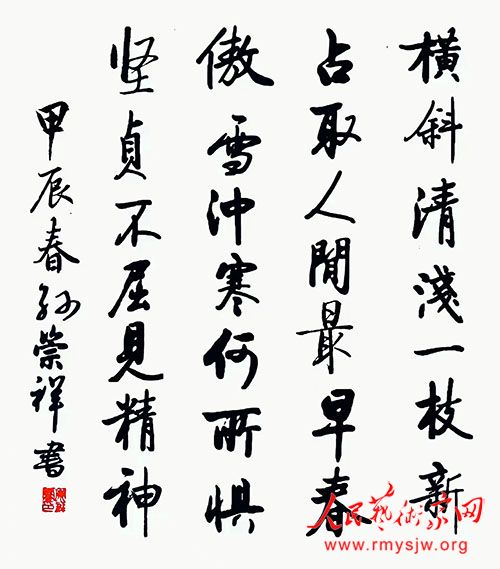 橫斜清淺一枝新
占取人間最早春
傲雪沖寒何所惧
坚貞不屈見精神
甲辰春孙榮祥書
人民藝術家网
www.rmysjw.org